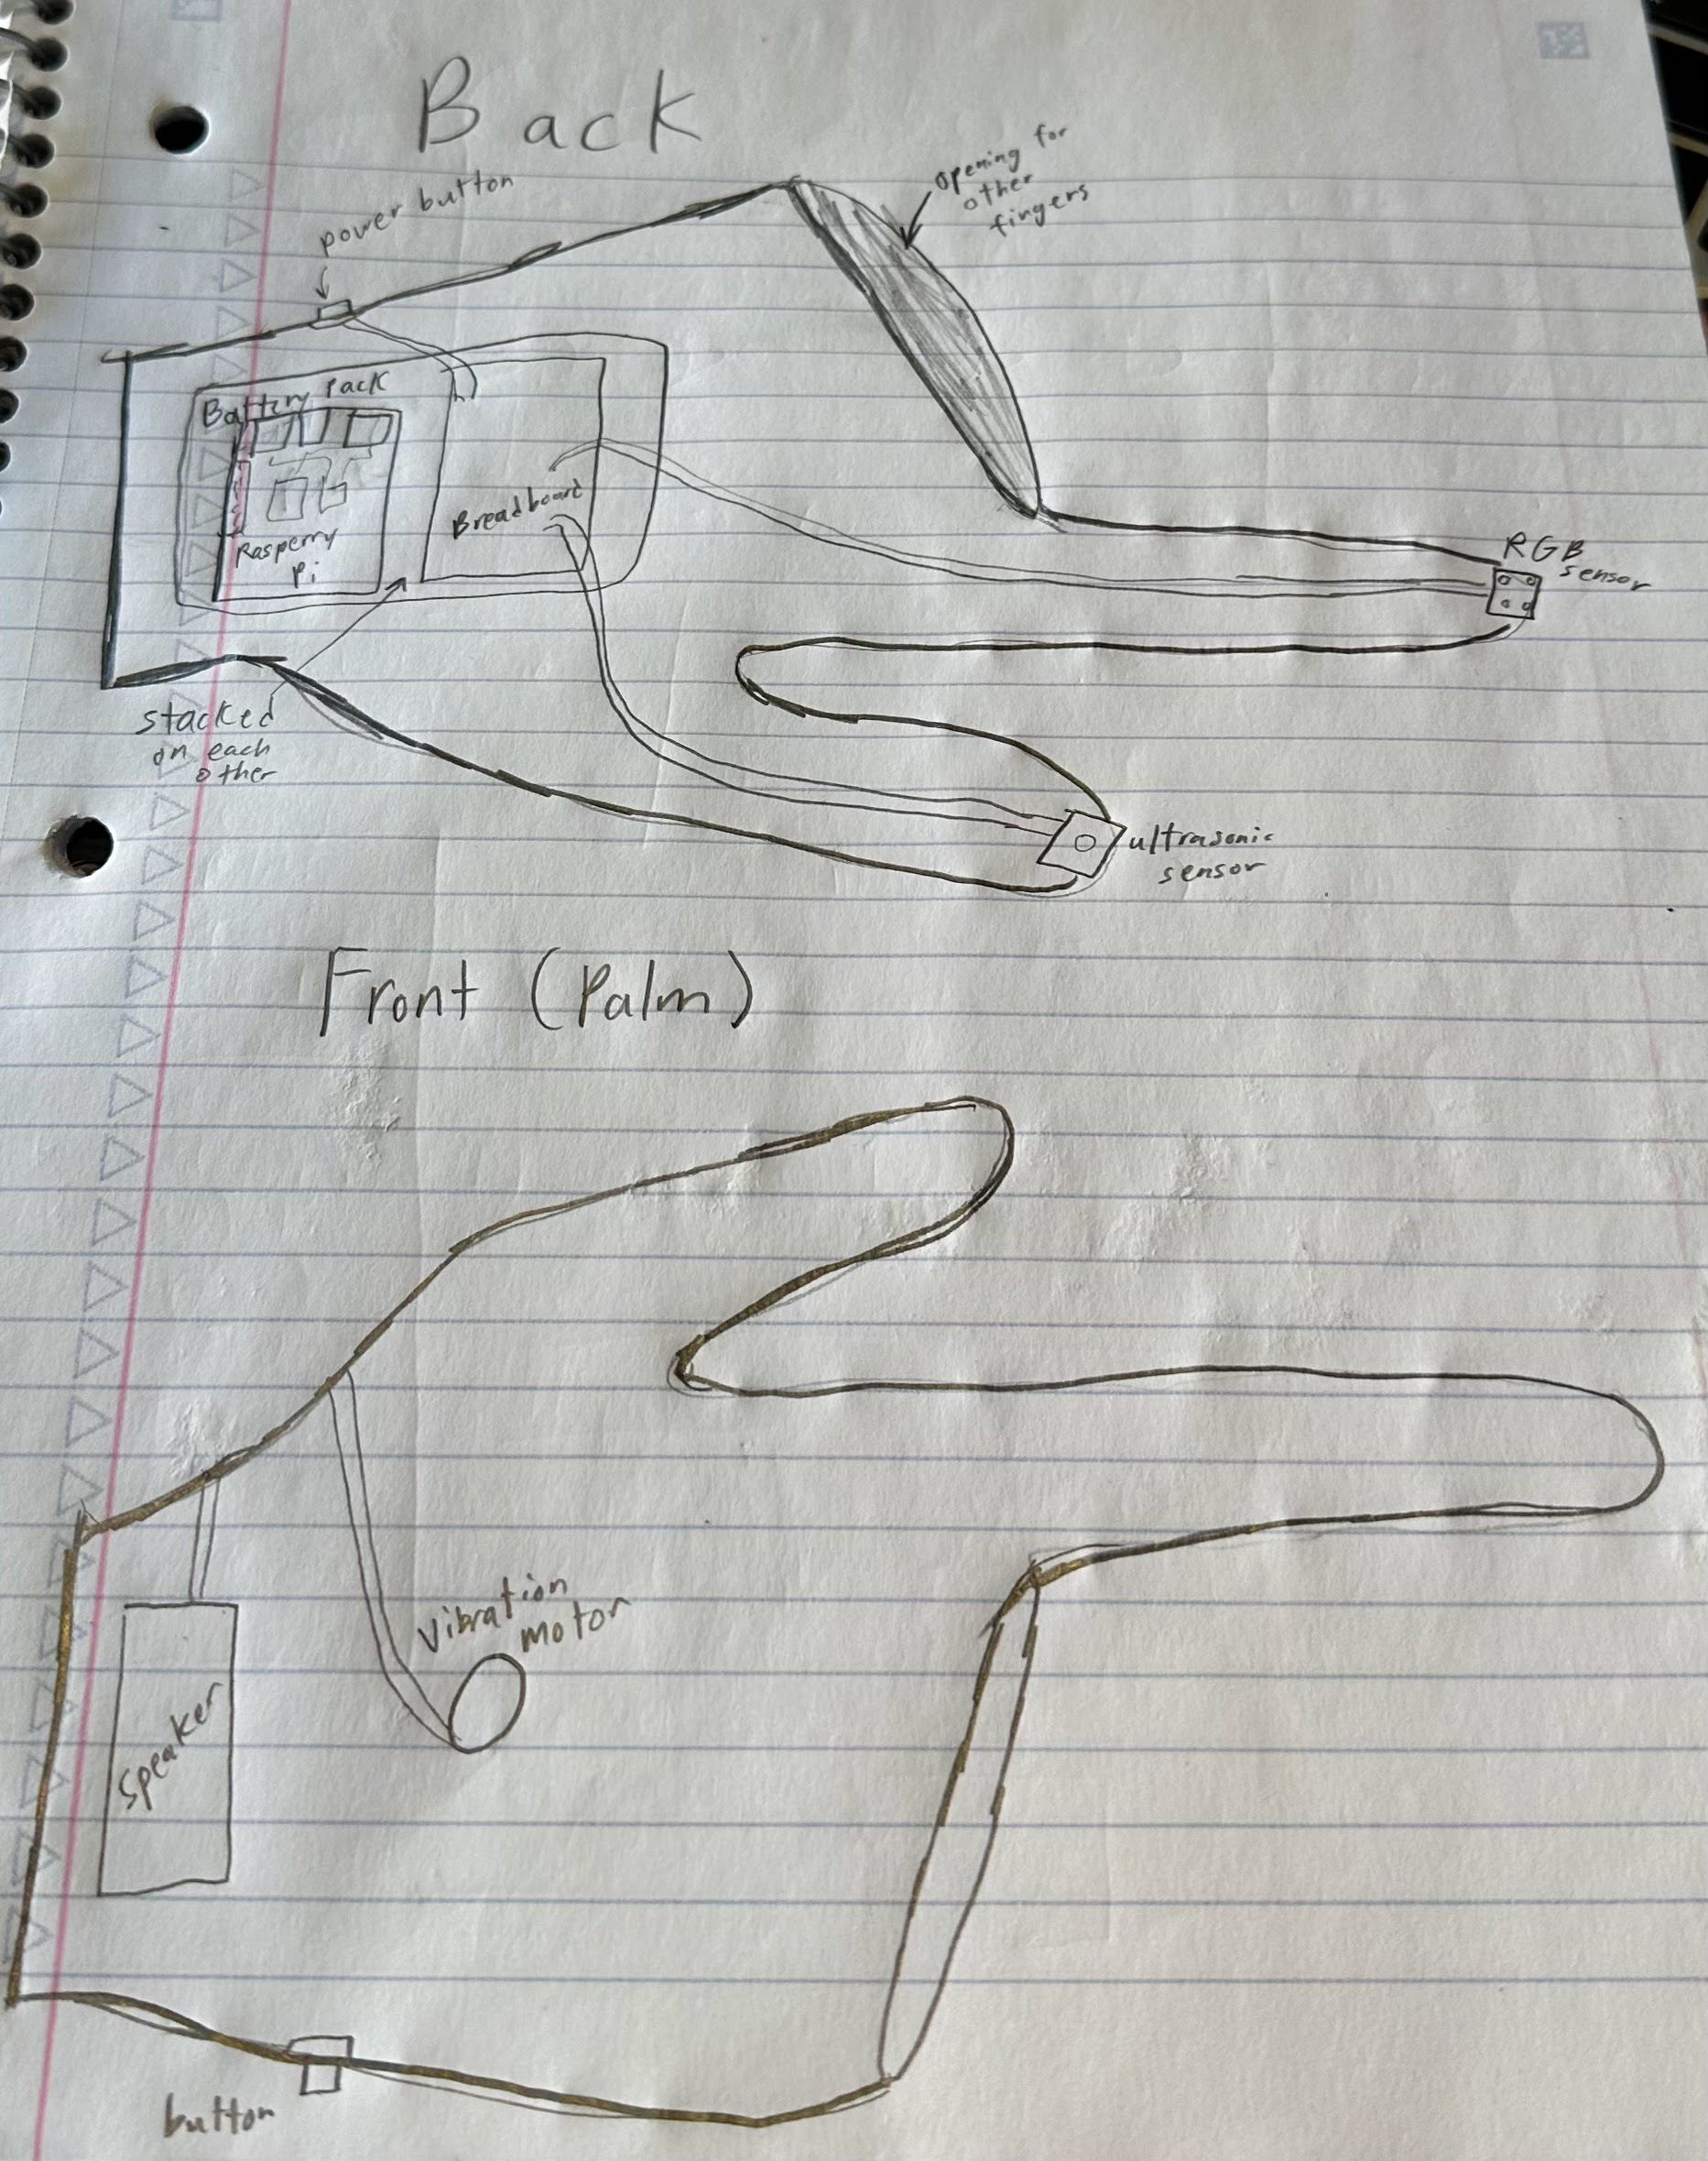 Back
power button
opening for
other
fingers
Battery Pack
Rasperry
Pi
Breadboard
RGB
sensor
stacked
on each
other
ultrasonic
sensor
Front (Palm)
Vibration
motor
Speaker
button